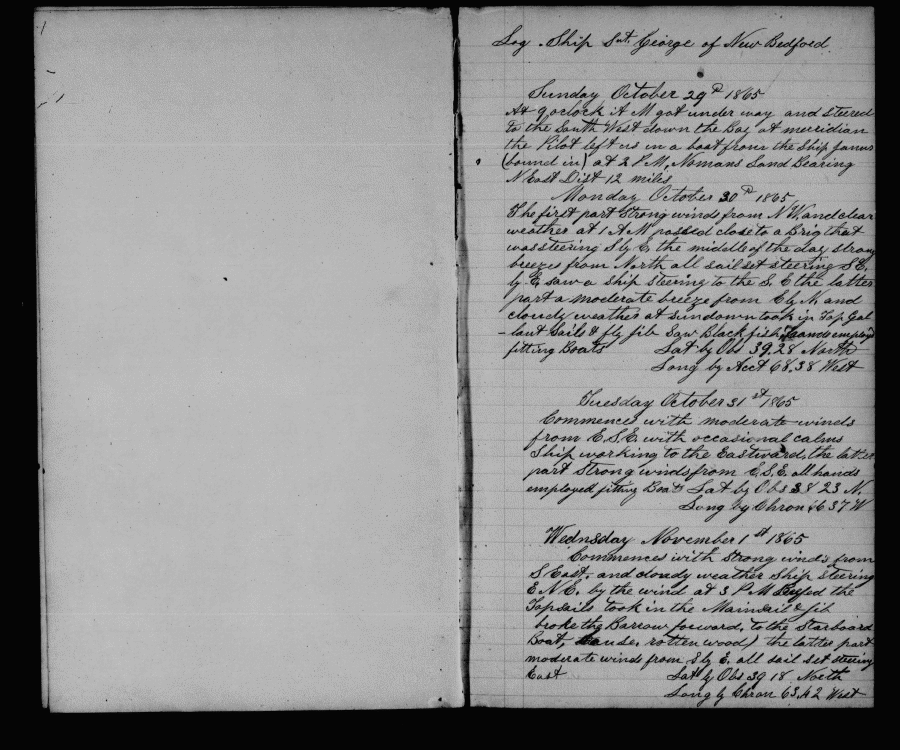 Log Ship Snt. George of New Bedford.
Sunday October 29th 1865
At 9 oclock A M got under way and steered
to the South West down the Bay at meridian
the Pilot left us in a boat from the Ship Janus
(bound in) at 2 P.M. Nomans Land Bearing
N East Dist 12 miles
Monday October 30th 1865
The first part Strong winds from N W and clear
weather at 1 A M passed close to a Brig that
was steering S by E. the middle of the day strong
breezes from North all sail set steering S E.
by E. saw a ship steering to the S. E the latter
part a moderate breeze from E by N. and
cloudy weather at sundown took in Top Gal
-lant Sails & fly jib Saw Blackfish hands employd
fitting Boats Lat by Obs 39.28 North
Long by Acct 68.38 West
Tuesday October 31st 1865
Commences with moderate winds
from E.S.E. with occasional calms
Ship working to the Eastward, the latter
part Strong winds from E.S.E. all hands
employed fitting Boats Lat by Obs 38 23 N.
Long by Chron 66 37 W
Wednsday November 1st 1865
Commences with Strong winds from
S East. and cloudy weather Ship steering
E N E. by the wind at 3 P M Reefed the
Topsails took in the Mainsail & jib
broke the Barrow forward, to the Starboard
Boat, Cause. rotten wood) the latter part
moderate winds from S by E. all sail set steering
East Lat by Obs 39 18 North
Long by Chron 63.42 West